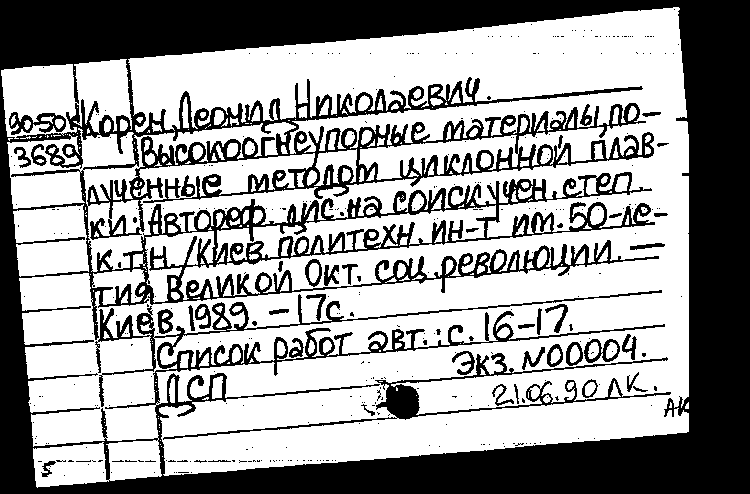 90-50к Корен, Леонид Николаевич.
3689 Высокоогнеупорные материалы, по-
лученные методом циклонной плав-
ки: Автореф. дис. на соиск. учен. степ.
к.т.н. /Киев. политехн. ин-т им. 50-ле-
тия Великой Окт. соц. революции. —
Киев, 1989. – 17с.
Список работ авт.: с. 16-17.
Экз. N00004.
ДСП
21.06.90 ЛК.
АК
5